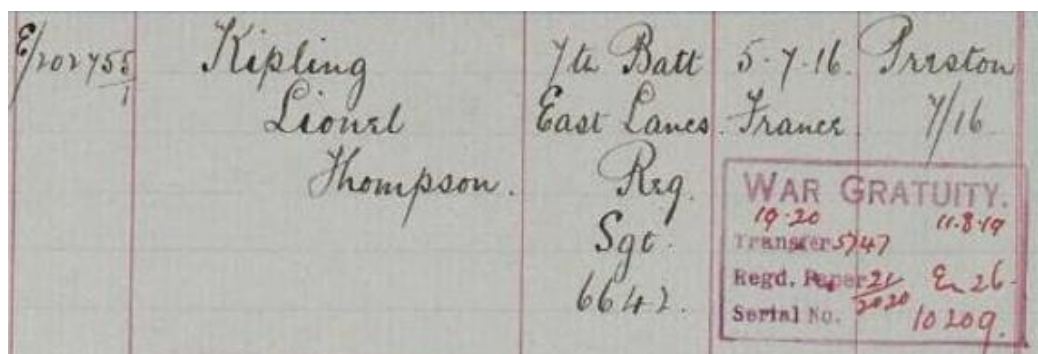 E/202755/1
Kipling
Lionel
Thompson.
7th Batt
East Lancs.
Reg.
Sgt.
6642.
5.7.16.
France.
Preston
7/16
WAR GRATUITY.
19.20 11.8.19
Transfer 5747
Regd. Paper 21/2020 En 26
Serial No. 10209.